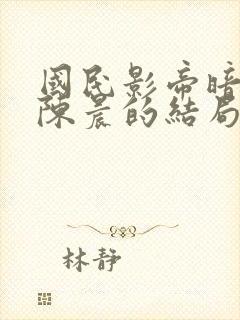 國民影帝暗
陳晨的結局
林靜